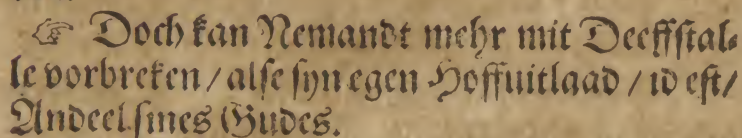 ☞ Doch kan Nemandt mehr mit Deeffstal-
le vorbreken / alse syn egen Hoffuitlaad / id est /
Andeel sines Gudes.